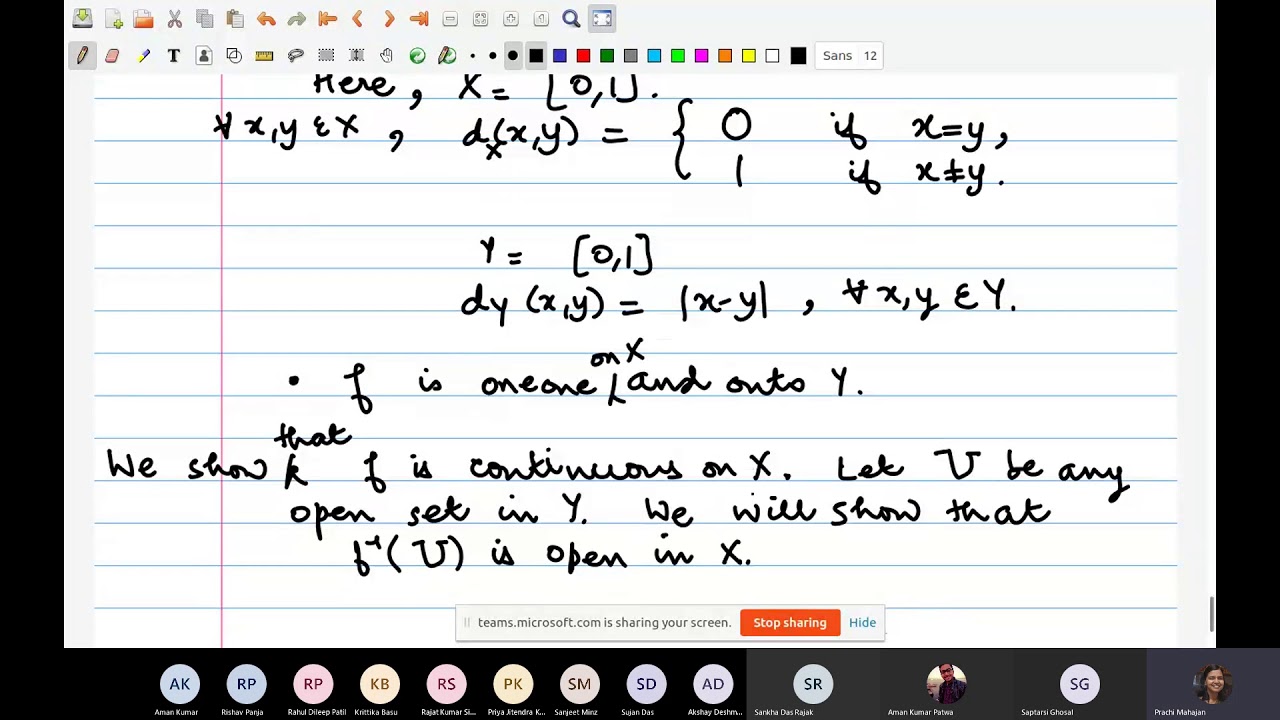 Sans 12
Here, X = [0,1].
∀ x,y ε X , d_X(x,y) = { 0 if x=y,
1 if x≠y.
Y = [0,1]
d_Y (x,y) = |x-y| , ∀ x,y ε Y.
on X
• f is oneone and onto Y.
that
We show f is continuous on X. Let U be any
open set in Y. We will show that
f⁻¹(U) is open in X.
teams.microsoft.com is sharing your screen. Stop sharing Hide
AK RP RP KB RS PK SM SD AD SR SG
Aman Kumar Rishav Panja Rahul Dileep Patil Krittika Basu Rajat Kumar Si... Priya Jitendra K... Sanjeet Minz Sujan Das Akshay Deshm... Sankha Das Rajak Aman Kumar Patwa Saptarsi Ghosal Prachi Mahajan